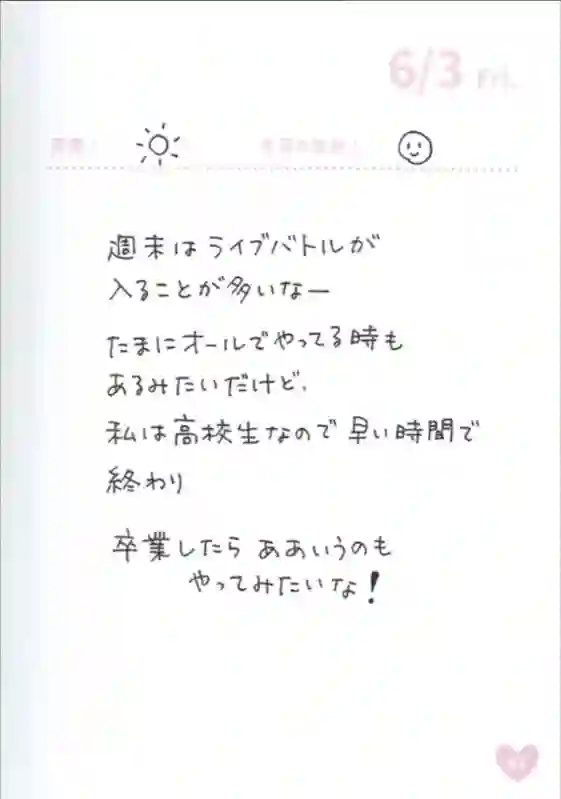 6/3 Fri.
週末はライブバトルが
入ることが多いなー
たまにオールでやってる時も
あるみたいだけど、
私は高校生なので早い時間で
終わり
卒業したらああいうのも
やってみたいな!